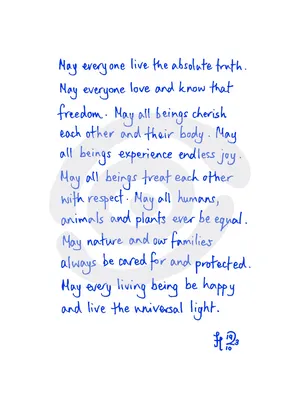 May everyone live the absolute truth.
May everyone love and know that
freedom. May all beings cherish
each other and their body. May
all beings experience endless joy.
May all beings treat each other
with respect. May all humans,
animals and plants ever be equal.
May nature and our families
always be cared for and protected.
May every living being be happy
and live the universal light.